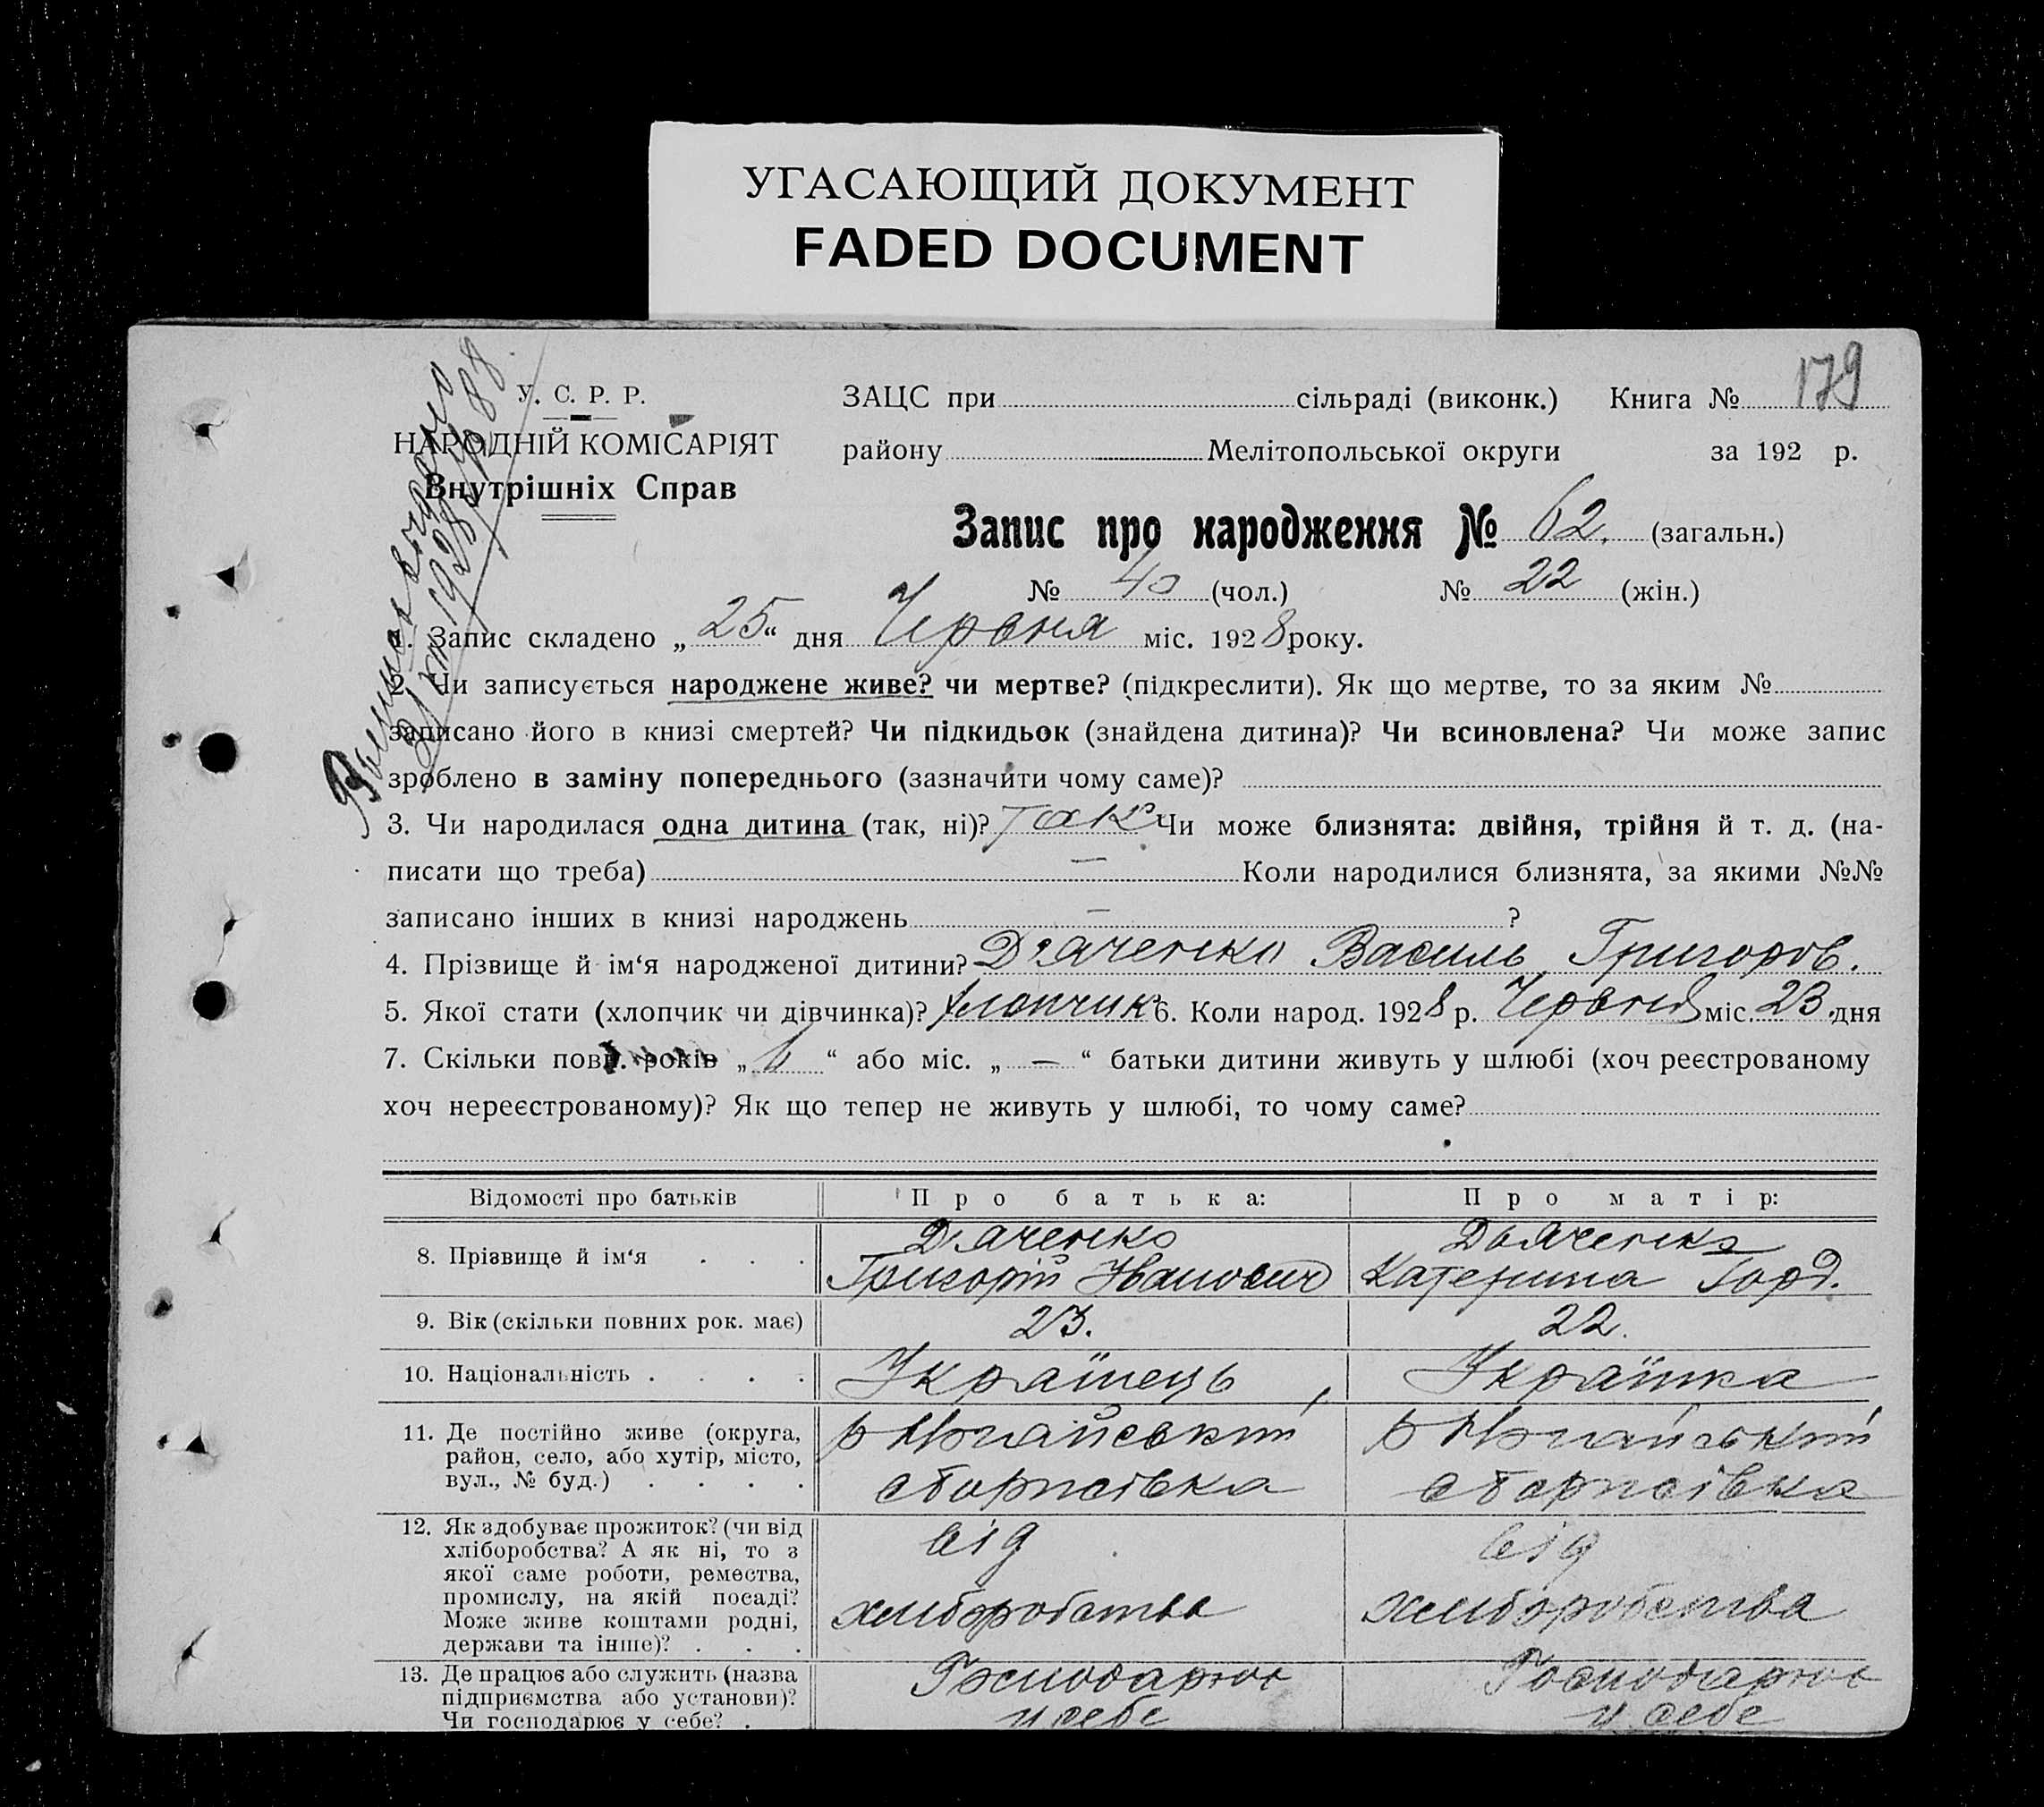 УГАСАЮЩИЙ ДОКУМЕНТ
FADED DOCUMENT
У. С. Р. Р.
НАРОДНІЙ КОМІСАРІЯТ
Внутрішніх Справ
ЗАЦС при сільраді (виконк.) Книга № 179
району Мелітопольської округи за 192 р.
Запис про народження № 62. (загальн.)
№ 40 (чол.) № 22 (жін.)
1. Запис складено „ 25 “ дня Червня міс. 1928 року.
2. Чи записується народжене живе? чи мертве? (підкреслити). Як що мертве, то за яким №
записано його в книзі смертей? Чи підкидьок (знайдена дитина)? Чи всиновлена? Чи може запис
зроблено в заміну попереднього (зазначити чому саме)?
3. Чи народилася одна дитина (так, ні)? Так Чи може близнята: двійня, трійня й т. д. (на-
писати що треба) — Коли народилися близнята, за якими №№
записано інших в книзі народжень — ?
4. Прізвище й ім‘я народженої дитини? Дяченко Василь Григоров.
5. Якої стати (хлопчик чи дівчинка)? хлопчик 6. Коли народ. 1928 р. Червня міс. 23 дня
7. Скільки повн. років „ “ або міс. „ — “ батьки дитини живуть у шлюбі (хоч реєстрованому
хоч нереєстрованому)? Як що тепер не живуть у шлюбі, то чому саме?
Відомості про батьків Про батька: Про матір:
8. Прізвище й ім‘я . . . Дяченко Григорій Іванович Дьяченко Катерина Горд.
9. Вік (скільки повних рок. має) 23. 22.
10. Національність . . . . Українець Українка
11. Де постійно живе (округа,
район, село, або хутір, місто,
вул., № буд.) . . . .
12. Як здобуває прожиток? (чи від
хліборобства? А як ні, то з
якої саме роботи, ремества,
промислу, на якій посаді?
Може живе коштами родні,
держави та інше)? . . .
від від
хліборобства хліборобства
13. Де працює або служить (назва
підприємства або установи)?
Чи господарює у себе? .
Господарює Господарює
у себе у себе